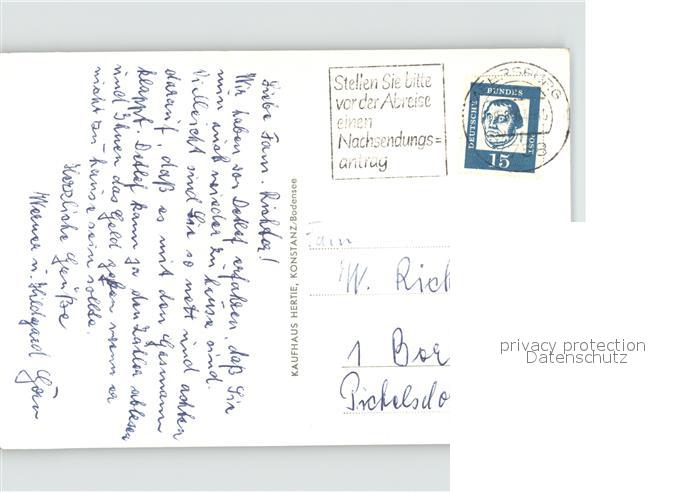 Liebe Fam. Richter!
Wir haben von Detlef erfahren, daß Sie
nun mal wieder zu hause sind.
Vielleicht sind Sie so nett und achten
darauf, daß es mit den Gasmann
klappt. Detlef kann ja den Zähler ablesen
und Ihnen das Geld geben wenn er
nicht zu-hause sein sollte.
Herzliche Grüße
Werner u. Hildegard
KAUFHAUS HERTIE, KONSTANZ/Bodensee
Stellen Sie bitte
vor der Abreise
einen
Nachsendungs=
antrag
DEUTSCHE BUNDESPOST
15
Fam
W. Rich
1 Ber
Pichelsdo
privacy protection
Datenschutz